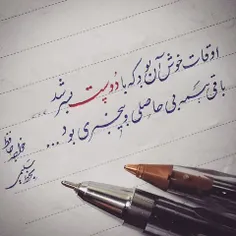 اوقات خوش آن بود که با دوست بسر شد
باقی همه بی حاصلی و بیخبری بود ...